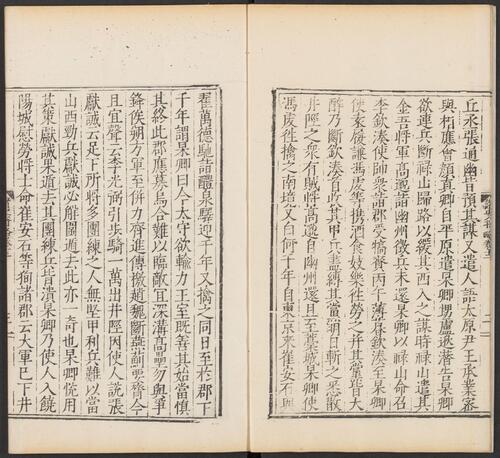 丘丞張通幽皆預其謀又遣人語太原尹王承業密
與相應會顏真卿自平原遣杲卿甥盧逖潛告杲卿
欲連兵斷祿山歸路以緩其西入之謀時祿山遣其
金吾將軍高邈詣幽州徵兵未還杲卿以祿山命召
李欽湊使帥衆詣郡受犒賚丙午薄暮欽湊至杲卿
使袁履謙馮虔等攜酒食妓樂徃勞之并其黨皆大
醉乃斷欽湊首收其甲兵盡縛其黨明日斬之悉散
井陘之衆有賊將高邈自幽州還且至藁城杲卿使
馮虔徃擒之南境又白何千年自東京來崔安石與
翟萬德馳詣醴泉驛迎千年又擒之同日至於郡下
千年謂杲卿曰今太守欲輸力王室既善其始當慎
其終此郡應募烏合難以臨敵宜深溝高壘勿與爭
鋒俟朔方軍至併力齊進傳檄趙魏斷燕薊要膂今
且宜聲云李光弼引步騎一萬出井陘因使人說張
獻誠云足下所將多團練之人無堅甲利兵難以當
山西勁兵獻誠必解圍遁去此亦一奇也杲卿悅用
其策獻誠果遁去其團練兵皆潰杲卿乃使人入饒
陽城慰勞將士命崔安石等徇諸郡云大軍已下井